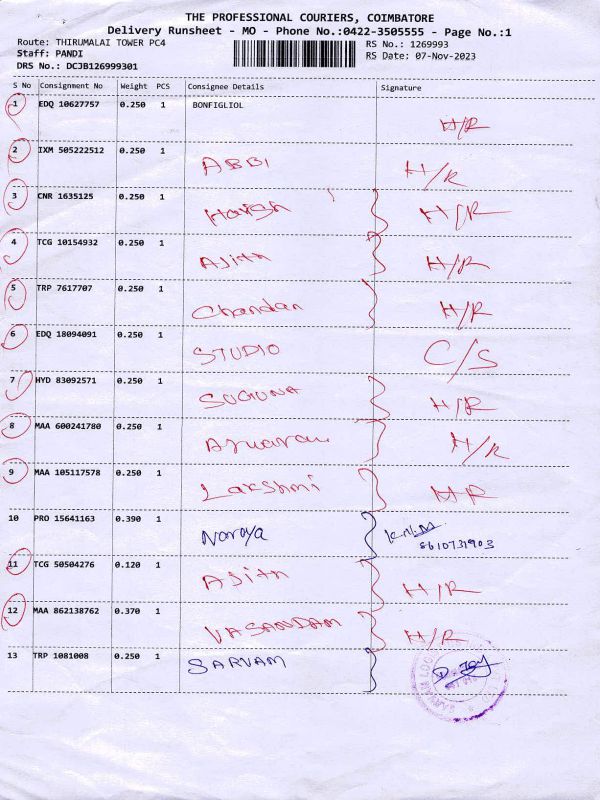 THE PROFESSIONAL COURIERS, COIMBATORE
Delivery Runsheet - MO - Phone No.:0422-3505555 - Page No.:1
Route: THIRUMALAI TOWER PC4 RS No.: 1269993
Staff: PANDI RS Date: 07-Nov-2023
DRS No.: DCJB126999301
S No Consignment No Weight PCS Consignee Details Signature
1 EDQ 10627757 0.250 1 BONFIGLIOL H/R
2 IXM 505222512 0.250 1 ABBI H/R
3 CNR 1635125 0.250 1 Harish H/R
4 TCG 10154932 0.250 1 Ajith H/R
5 TRP 7617707 0.250 1 Chandan H/R
6 EDQ 18094091 0.250 1 STUDIO C/S
7 HYD 83092571 0.250 1 SUGUNA H/R
8 MAA 600241780 0.250 1 H/R
9 MAA 105117578 0.250 1 Lakshmi HR
10 PRO 15641163 0.390 1 Noroya
11 TCG 50504276 0.120 1 Ajith H/R
12 MAA 862138762 0.370 1 VASANDAM H/R
13 TRP 1081008 0.250 1 SARVAM